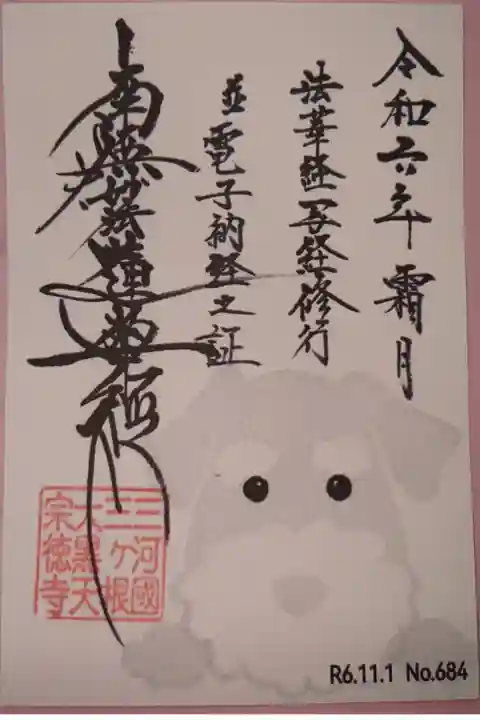 令和六年霜月
法華経写経修行
並電子納経之証
南無妙法蓮華経
三河國
三ヶ根
大黒天
宗徳寺
R6.11.1 No.684